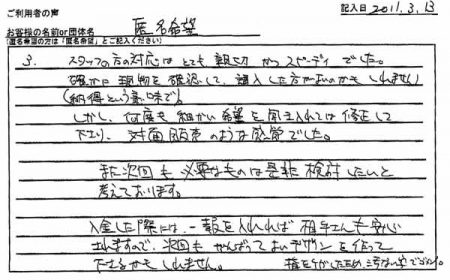 ご利用者の声
記入日 2011.3.13
お客様の名前or団体名 匿名希望
(匿名希望の方は「匿名希望」とご記入ください)
3. スタッフの方の対応はとても親切かつスピーディでした。
確かに現物を確認して、購入した方が良いのかもしれません
(納得という意味で)。
しかし、何度も細かい希望を聞き入れては修正して
下さり、対面販売のような感覚でした。
また次回も必要なものは是非検討したいと
考えております。
入金した際には、一報を入れれば相手さんも安心
されますので、次回もがんばってよいデザインを作って
下さるかもしれません。
指をケガしたため、